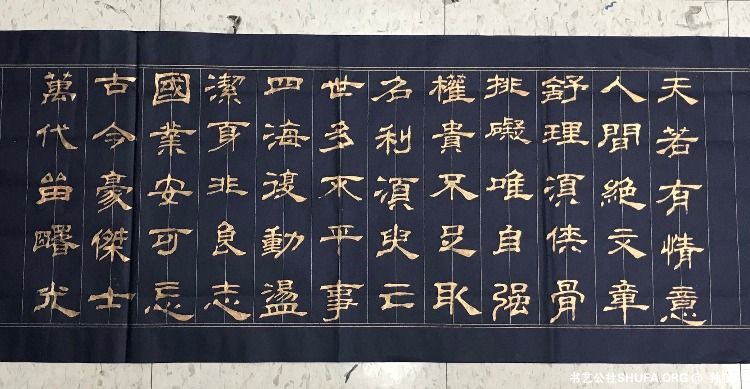 天若有情意
人間絶文章
舒理須俠骨
排礙唯自强
權貴不足取
名利須臾亡
世多不平事
四海復動盪
潔身非良志
國業安可忘
古今豪傑士
萬代留曙光
书艺公社SHUFA.ORG @